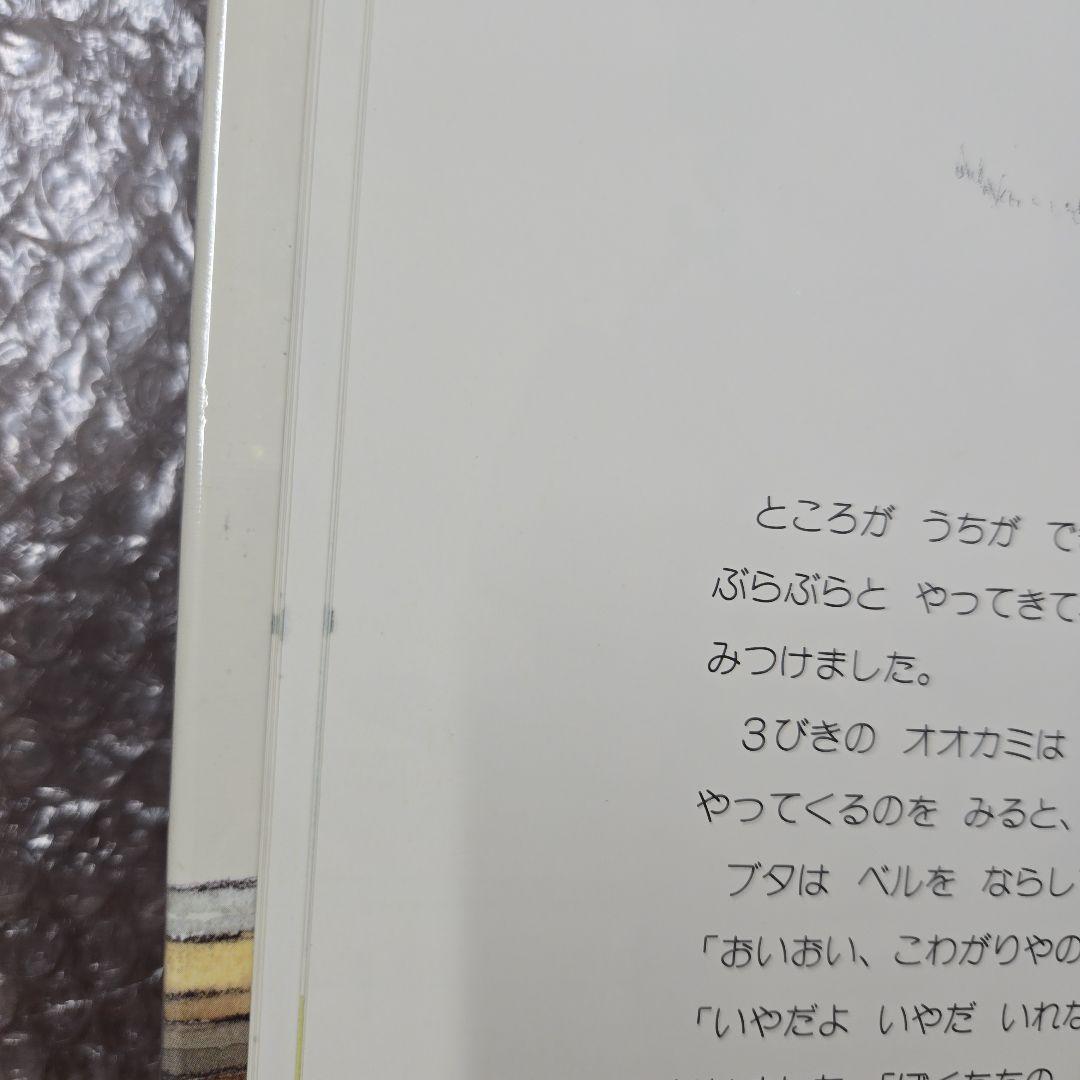 ところが うちが で
ぶらぶらと やってきて
みつけました。
3びきの オオカミは
やってくるのを みると、
ブタは ベルを ならし
「おいおい、こわがりやの
「いやだよ いやだ いれな
「ぼくたちの